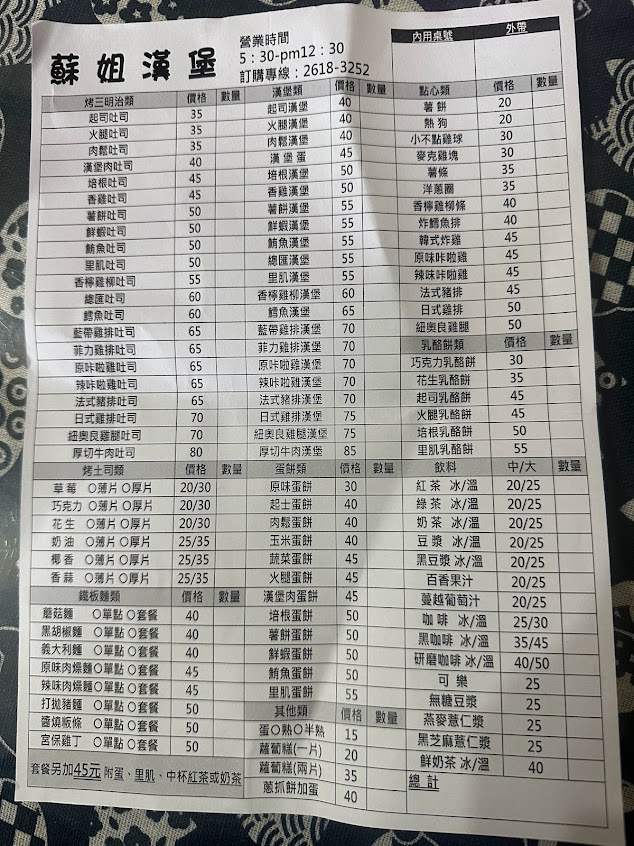 蘇姐漢堡
營業時間
5：30-pm12：30
訂購專線：2618-3252
內用桌號 外帶
烤三明治類 價格 數量
起司吐司 35
火腿吐司 35
肉鬆吐司 35
漢堡肉吐司 40
培根吐司 45
香雞吐司 45
薯餅吐司 50
鮮蝦吐司 50
鮪魚吐司 50
里肌吐司 50
香檸雞柳吐司 55
總匯吐司 60
鱈魚吐司 60
藍帶雞排吐司 65
菲力雞排吐司 65
原咔啦雞吐司 65
辣咔啦雞吐司 65
法式豬排吐司 65
日式雞排吐司 70
紐奧良雞腿吐司 70
厚切牛肉吐司 80
烤土司類 價格 數量
草莓 〇薄片〇厚片 20/30
巧克力 〇薄片〇厚片 20/30
花生 〇薄片〇厚片 20/30
奶油 〇薄片〇厚片 25/35
椰香 〇薄片〇厚片 25/35
香蒜 〇薄片〇厚片 25/35
鐵板麵類 價格 數量
蘑菇麵 〇單點〇套餐 40
黑胡椒麵 〇單點〇套餐 40
義大利麵 〇單點〇套餐 40
原味肉燥麵〇單點〇套餐 45
辣味肉燥麵〇單點〇套餐 45
打拋豬麵 〇單點〇套餐 50
醬燒板條 〇單點〇套餐 50
宮保雞丁 〇單點〇套餐 50
套餐另加45元 附蛋、里肌、中杯紅茶或奶茶
漢堡類 價格 數量
起司漢堡 40
火腿漢堡 40
肉鬆漢堡 40
漢堡蛋 45
培根漢堡 50
香雞漢堡 50
薯餅漢堡 55
鮮蝦漢堡 55
鮪魚漢堡 55
總匯漢堡 55
里肌漢堡 55
香檸雞柳漢堡 60
鱈魚漢堡 65
藍帶雞排漢堡 70
菲力雞排漢堡 70
原咔啦雞漢堡 70
辣咔啦雞漢堡 70
法式豬排漢堡 70
日式雞排漢堡 75
紐奧良雞腿漢堡 75
厚切牛肉漢堡 85
蛋餅類 價格 數量
原味蛋餅 30
起士蛋餅 40
肉鬆蛋餅 40
玉米蛋餅 40
蔬菜蛋餅 45
火腿蛋餅 45
漢堡肉蛋餅 45
培根蛋餅 50
薯餅蛋餅 50
鮮蝦蛋餅 50
鮪魚蛋餅 50
里肌蛋餅 55
其他類 價格 數量
蛋〇熟〇半熟 15
蘿蔔糕(一片) 20
蘿蔔糕(兩片) 35
蔥抓餅加蛋 40
點心類 價格 數量
薯餅 20
熱狗 20
小不點雞球 30
麥克雞塊 30
薯條 35
洋蔥圈 35
香檸雞柳條 40
炸鱈魚排 40
韓式炸雞 45
原味咔啦雞 45
辣味咔啦雞 45
法式豬排 45
日式雞排 50
紐奧良雞腿 50
乳酪餅類 價格 數量
巧克力乳酪餅 30
花生乳酪餅 35
起司乳酪餅 45
火腿乳酪餅 45
培根乳酪餅 50
里肌乳酪餅 55
飲料 中/大 數量
紅茶 冰/溫 20/25
綠茶 冰/溫 20/25
奶茶 冰/溫 20/25
豆漿 冰/溫 20/25
黑豆漿 冰/溫 20/25
百香果汁 20/25
蔓越葡萄汁 20/25
咖啡 冰/溫 25/30
黑咖啡 冰/溫 35/45
研磨咖啡 冰/溫 40/50
可樂 25
無糖豆漿 25
燕麥薏仁漿 25
黑芝麻薏仁漿 25
鮮奶茶 冰/溫 40
總計